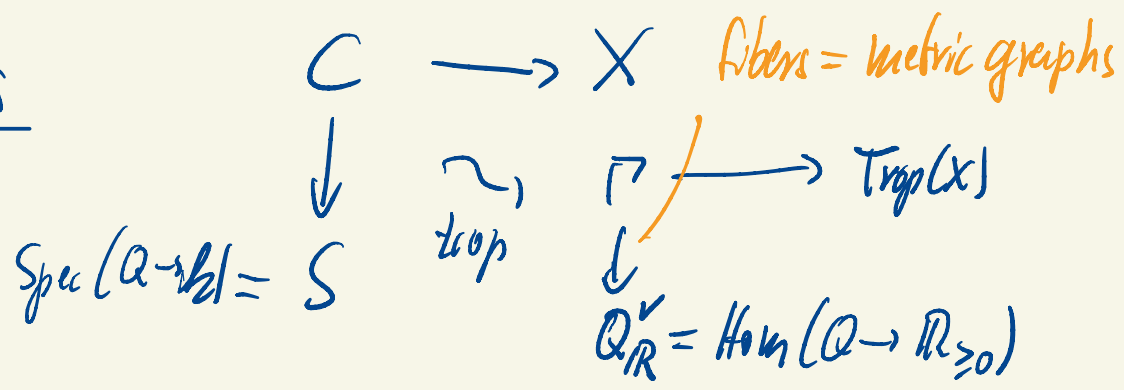 C → X fibers = metric graphs
↓ ⤳ Γ → Trop(X)
trop ↓
Spec(Q→k) = S
Q^∨_ℝ = Hom(Q→ℝ_≥0)